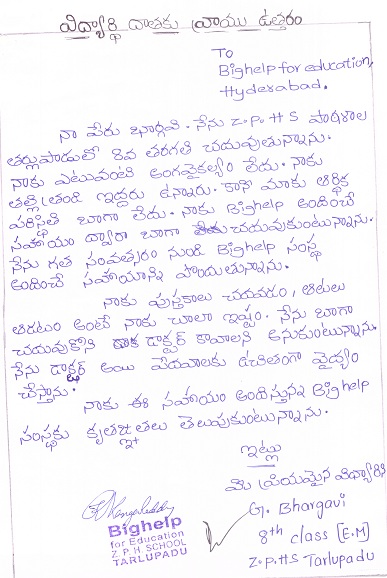 విద్యార్థి దాతకు వ్రాయు ఉత్తరం
To
Bighelp for education,
Hyderabad.
నా పేరు భార్గవి. నేను Z.P.H.S పాఠశాల
తర్లుపాడులో 8వ తరగతి చదువుతున్నాను.
నాకు ఎటువంటి అంగవైకల్యం లేదు. నాకు
తల్లి తండ్రి ఇద్దరు ఉన్నారు. కాని మాకు ఆర్థిక
పరిస్థితి బాగా లేదు. నాకు Bighelp అందించే
సహాయం ద్వారా బాగా చదువుకుంటున్నాను.
నేను గత సంవత్సరం నుండి Bighelp సంస్థ
అందించే సహాయాన్ని పొందుతున్నాను.
నాకు పుస్తకాలు చదవడం, ఆటలు
ఆడటం అంటే నాకు చాలా ఇష్టం. నేను బాగా
చదువుకోని డాక్టర్ కావాలని అనుకుంటున్నాను.
నేను డాక్టర్ అయి పేదవాలకు ఉచితంగా వైద్యం
చేస్తాను.
నాకు ఈ సహాయం అందిస్తున్న Bighelp
సంస్థకు కృతజ్ఞతలు తెలుపుకుంటున్నాను.
ఇట్లు
మీ ప్రియమైన విద్యార్థి
G. Bhargavi
8th class [E.M]
Z.P.H.S Tarlupadu
Bighelp
for Education
Z.P.H SCHOOL
TARLUPADU